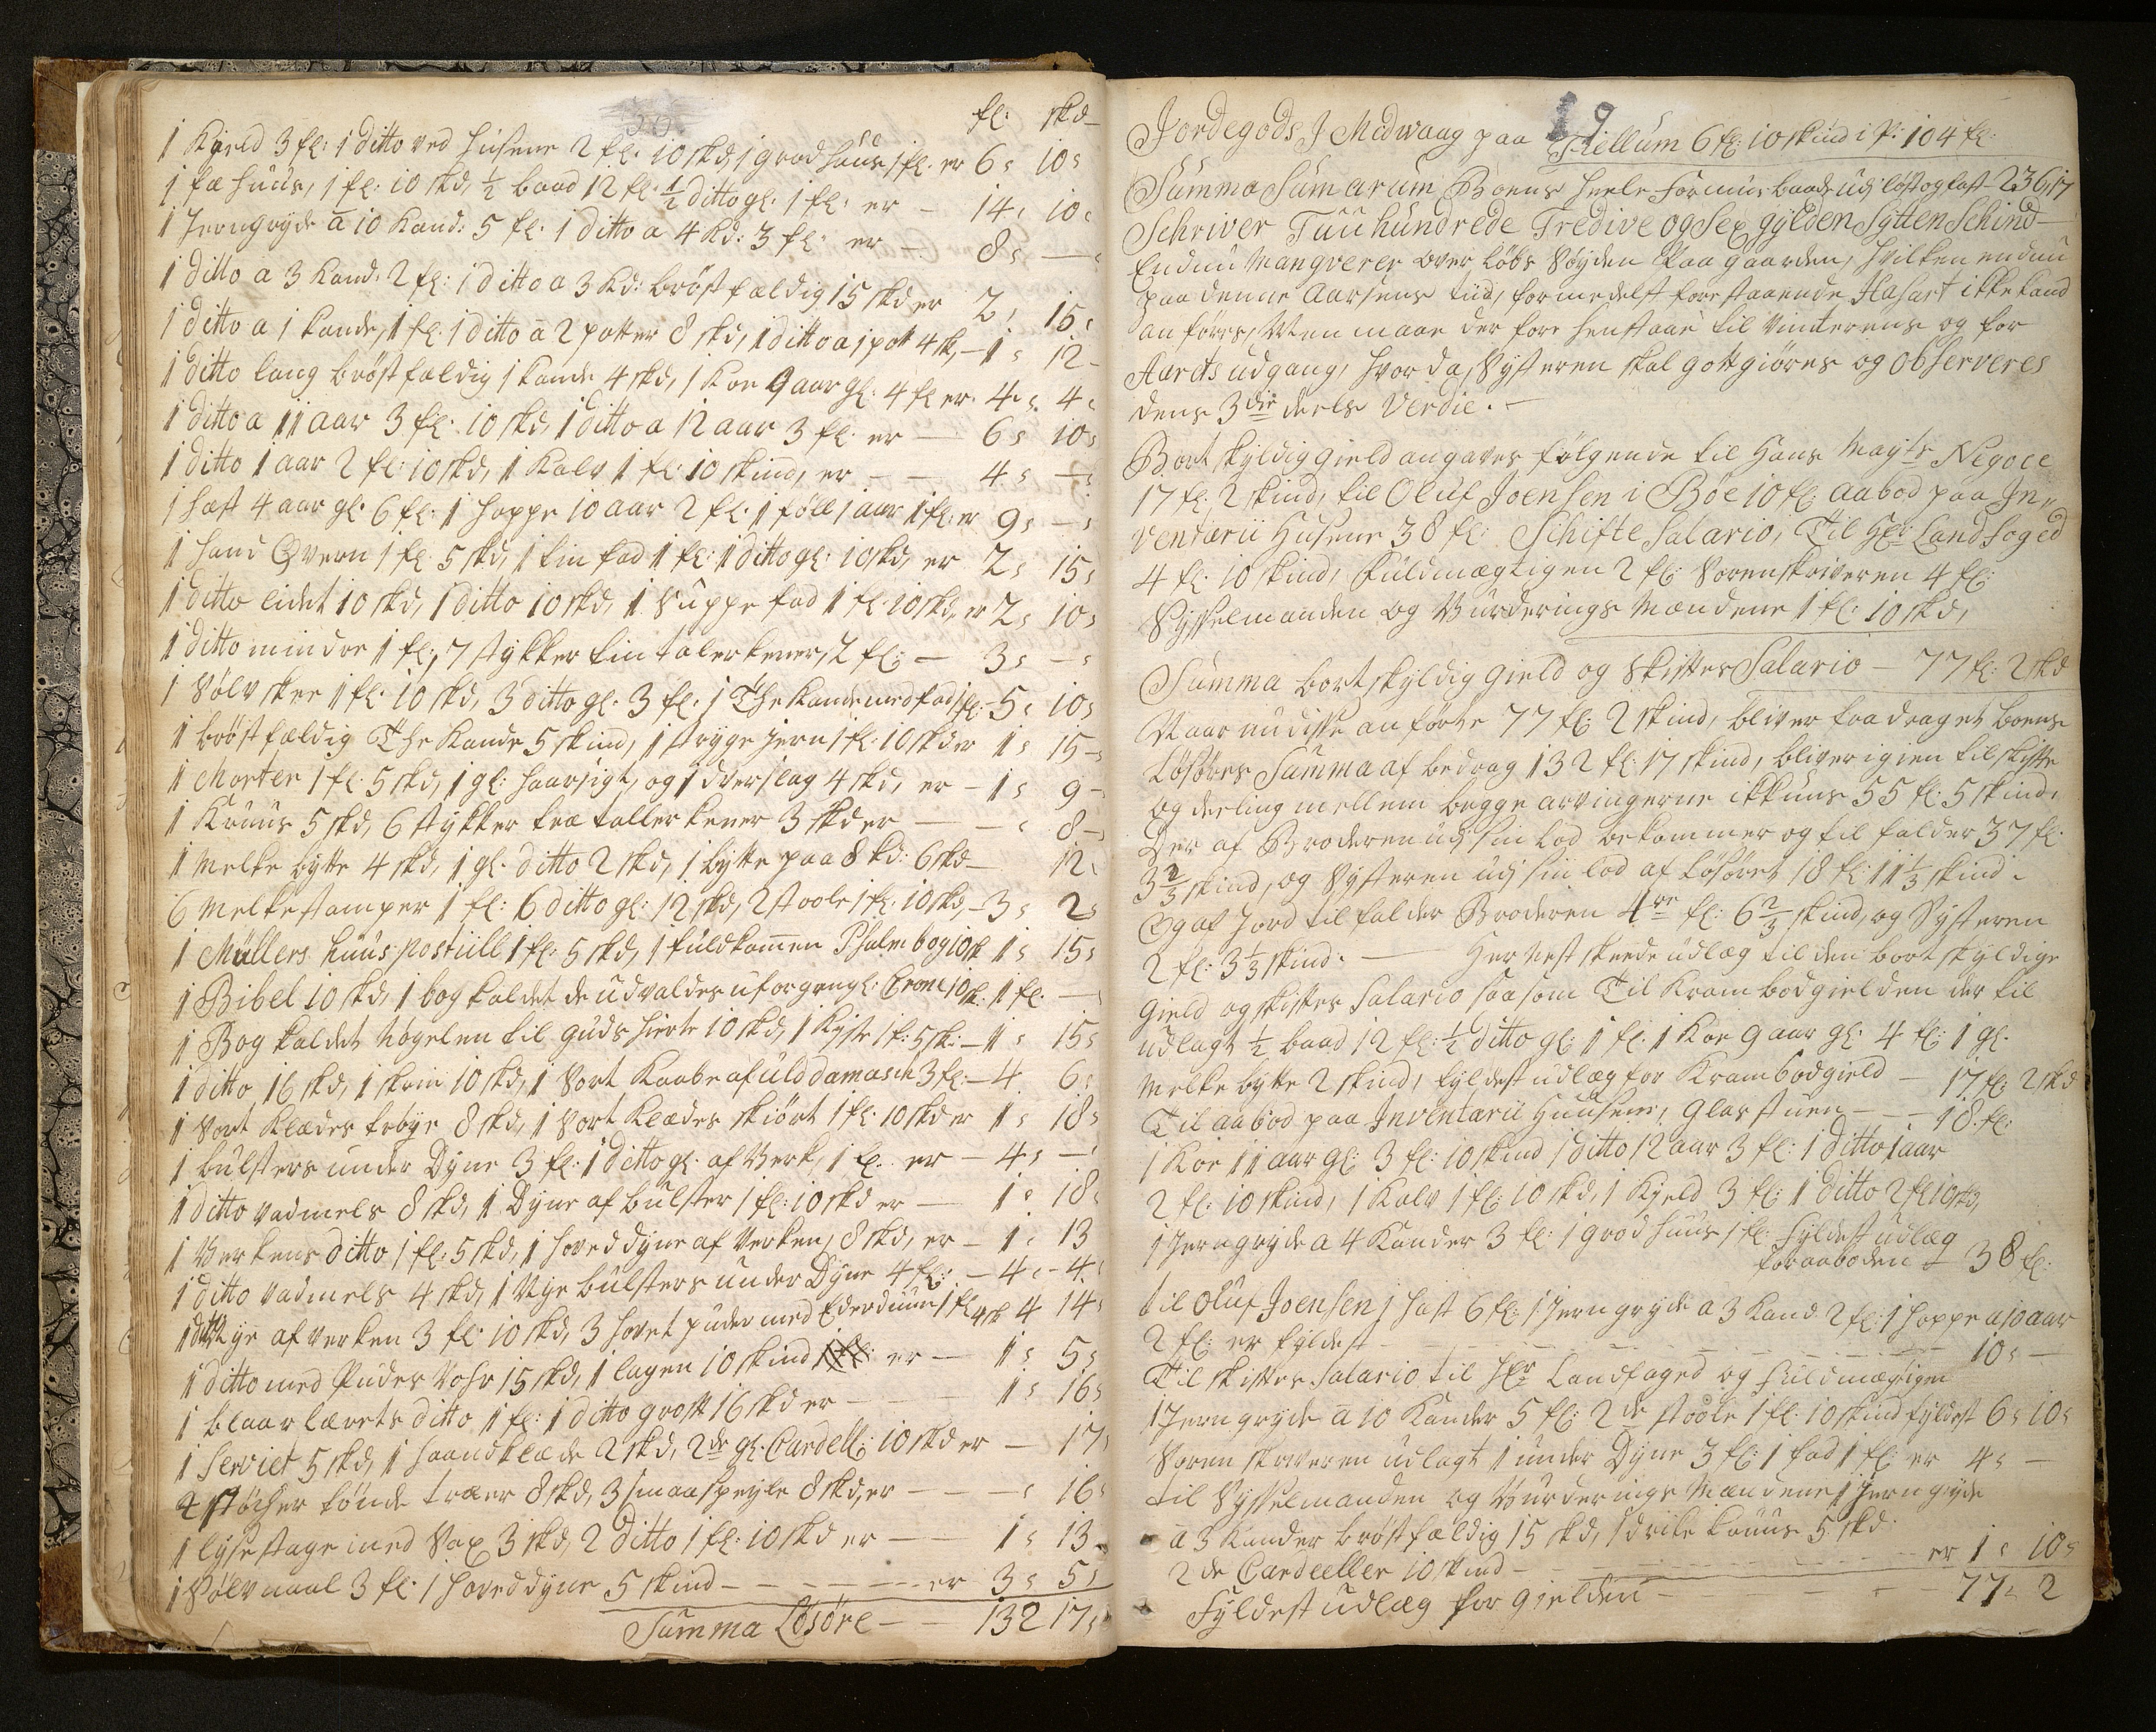 fl: skd
1 Kjeld 3 fl: 1 ditto ved Husene 2 fl: 10 skd, 1 groed huus 1 fl. er 6 s 10 s
1 fæ huus, 1 fl: 10 skd, ½ baad 12 fl. ½ ditto gl. 1 fl: er — 14 s 10 s
1 Jerngryde a 10 Kand: 5 fl. 1 ditto a 4 Kd: 3 fl: er — 8 s —
1 ditto a 3 Kand. 2 fl: 1 ditto a 3 Kd: brøstfældig 15 skd er 2 s 15 s
1 ditto a 1 kande, 1 fl. 1 ditto a 2 potter 8 skd, 1 ditto a 1 pot 4 sk, — 1 s 12
1 ditto lang brøstfældig 1 kande 4 skd, 1 Koe 9 aar gl. 4 fl er. 4 s 4 s
1 ditto a 11 aar 3 fl: 10 skd, 1 ditto a 12 aar 3 fl. er — 6 s 10 s
1 ditto 1 aar 2 fl: 10 skd, 1 Kalv 1 fl: 10 skind, er — — 4 s —
1 hæst 4 aar gl. 6 fl: 1 hoppe 10 aar 2 fl. 1 føll 1 aar 1 fl: er 9 s — s
1 hand Qvern 1 fl. 5 skd, 1 tin fad 1 fl: 1 ditto gl: 10 skd, er 2 s 15 s
1 ditto lidet 10 skd, 1 ditto 10 skd, 1 Suppe fad 1 fl. 10 skd, er 2 s 10 s
1 ditto mindre 1 fl:, 7 stykker tin talerkener, 2 fl: — 3 s — s
1 Sølv skee 1 fl: 10 skd, 3 ditto gl. 3 fl. 1 The Kande med fad 1 fl: 5 s 10 s
1 brøstfældig The Kande 5 skind, 1 stryge Jern 1 fl: 10 skd er 1 s 15 —
1 Morter 1 fl: 5 skd, 1 gl: haarsigt, og 1 dverslag 4 skd, er — 1 s 9 —
1 Kruus 5 skd, 6 stykker træ tallerkener 3 skd er — — s 8 —
1 Melke bytte 4 skd, 1 gl. ditto 2 skd, 1 bytte paa 8 kd: 6 skd — 12 s
6 Melkestamper 1 fl: 6 ditto gl: 12 skd, 2 stoole 1 fl. 10 skd, — 3 s 2 s
1 Müllers huus postiill 1 fl: 5 skd, 1 fuldkommen Psalmbog 10 sk 1 s 15 s
1 Bibel 10 skd, 1 bog kaldet de udvaldes uforgengl: Crone 10 sk: 1 fl. —
1 Bog kaldet Nøgelen til Guds hierte 10 skd, 1 Kiste 1 fl: 5 sk: — 1 s 15 s
1 ditto 16 skd, 1 skrin 10 skd, 1 Sort Kaabe af uld damasch 3 fl: — 4 6 s
1 Sort Klædes trøye 8 skd, 1 Sort Klædes skiört 1 fl. 10 skd er 1 s 18 s
1 bulsters under Dyne 3 fl: 1 ditto gl. af Verk, 1 fl. er — 4 s — s
1 ditto vadmels 8 skd, 1 Dyne af bulster 1 fl: 10 skd er — 1 s 18 s
1 Verkens ditto 1 fl: 5 skd, 1 hoveddyne af Verken, 8 skd, er — 1 s 13
1 ditto vadmels 4 skd, 1 Nye bulsters under Dyne 4 fl: — 4 s 4 s
1 ditto Nye af verken 3 fl: 10 skd, 3 hovet puder med Ederduun 1 fl 4 sk 4 14 s
1 ditto med Puder Vohr 15 skd, 1 lagen 10 skind er — 1 s 5 s
1 blaar lærets ditto 1 fl: 1 ditto groft 16 skd er — — 1 s 16 s
1 Serviet 5 skd, 1 haandklæde 2 skd, 2de gl. Cardell: 10 skd er — 17 s
4 Støcher tønde træer 8 skd, 3 smaa speyle 8 skd, er — — s 16 s
1 lysestage med Sax 3 skd, 2 ditto 1 fl: 10 skd er — — 1 s 13 s
1 Sølv naal 3 fl: 1 hoveddyne 5 skind — — — — er 3 s 5 s
Summa Løsøre — — 132 17 s
19
Jordegods J Midwaag paa Tiellum 6 fl: 10 skind i P: 104 fl:
Summa Sumarum Boens heele Formue baade udj løst og fast 236, 17
Schriver Tuu hundrede Tredive og Sex gylden Sytten Schind
Endnu Mangverer over løbs Søyden paa gaarden, hvilken endnu
paa denne Aarsens tiid, formedelst forestaaende Hasart ikke kand
anføres, Men maae der fore henstaae til Vinterens og for
Aarets udgang, hvor da, Systeren skal gottgiøres og Observeres
dens 3die deels Verdie. —
Bort skyldig gield angaves følgende til Hans Mayts Negoce
17 fl. 2 skind, til Oluf Joensen i Bøe 10 fl: aabod paa In„
ventarii Husene 38 fl: Schifte Salario, Til Hr: Landfoged
4 fl. 10 skind, Fuldmægtigen 2 fl: Sorenskriveren 4 fl:
Sysselmanden og Vurderings Mændene 1 fl: 10 skd,
Summa bortskyldig gield og Skiftes Salario — 77 fl: 2 skd
Naar nu disse anførte 77 fl: 2 skind, bliver fradraget boens
Løsøres Summa af bedrag 132 fl: 17 skind, bliver igien til skifte
og deeling mellem begge arvingerne ikkuns 55 fl: 5 skind.
Der af Broderen udj sin lod bekommer og til falder 37 fl.
3⅔ skind, og Systeren udj sin lod af Løsøret 18 fl: 11⅓ skind.
Og af Jord til falder Broderen 4re fl: 6⅔ skind, og Systeren
2 fl: 3⅓ skind. — Her nest skeede udlæg til den bortskyldige
gield og skiftes Salario saasom Til Krambodgielden der til
udlagt ½ baad 12 fl: ½ ditto gl: 1 fl. 1 Koe 9 aar gl: 4 fl: 1 gl.
Melke bytte 2 skind, fyldest udlæg for Krambodgield — 17 fl: 2 skd
Til aabod paa Inventarii Huusene, Glasstuen — — 18 fl:
1 Koe 11 aar gl: 3 fl: 10 skind 1 ditto 12 aar 3 fl: 1 ditto 1 aar
2 fl: 10 skind, 1 Kalv 1 fl: 10 skd, 1 Kjeld 3 fl: 1 ditto 2 fl 10 skd,
1 Jerngryde a 4 Kander 3 fl: 1 groed huus 1 fl: fyldest udlæg
for aaboden — 38 fl:
til Oluf Joensen 1 hæst 6 fl: 1 Jerngryde a 3 Kand. 2 fl: 1 hoppe a 10 aar
2 fl: er fyldest — — — 10 s —
Til skiftes Salario til Hr. Landfoged og fuldmægtigen
1 Jerngryde a 10 Kander 5 fl: 2de stoole 1 fl. 10 skind fyldest 6 s 10 s
Soren skriveren udlagt 1 under Dyne 3 fl: 1 fad 1 fl: er 4 s —
til Sysselmanden og Vurderings Mændene 1 Jerngryde
a 3 Kander brøstfældig 15 skd, 1 drike kruus 5 skd.
2de Cardeeller 10 skind — — er 1 s 10 s
Fyldest udlæg for gielden — — 77 s 2